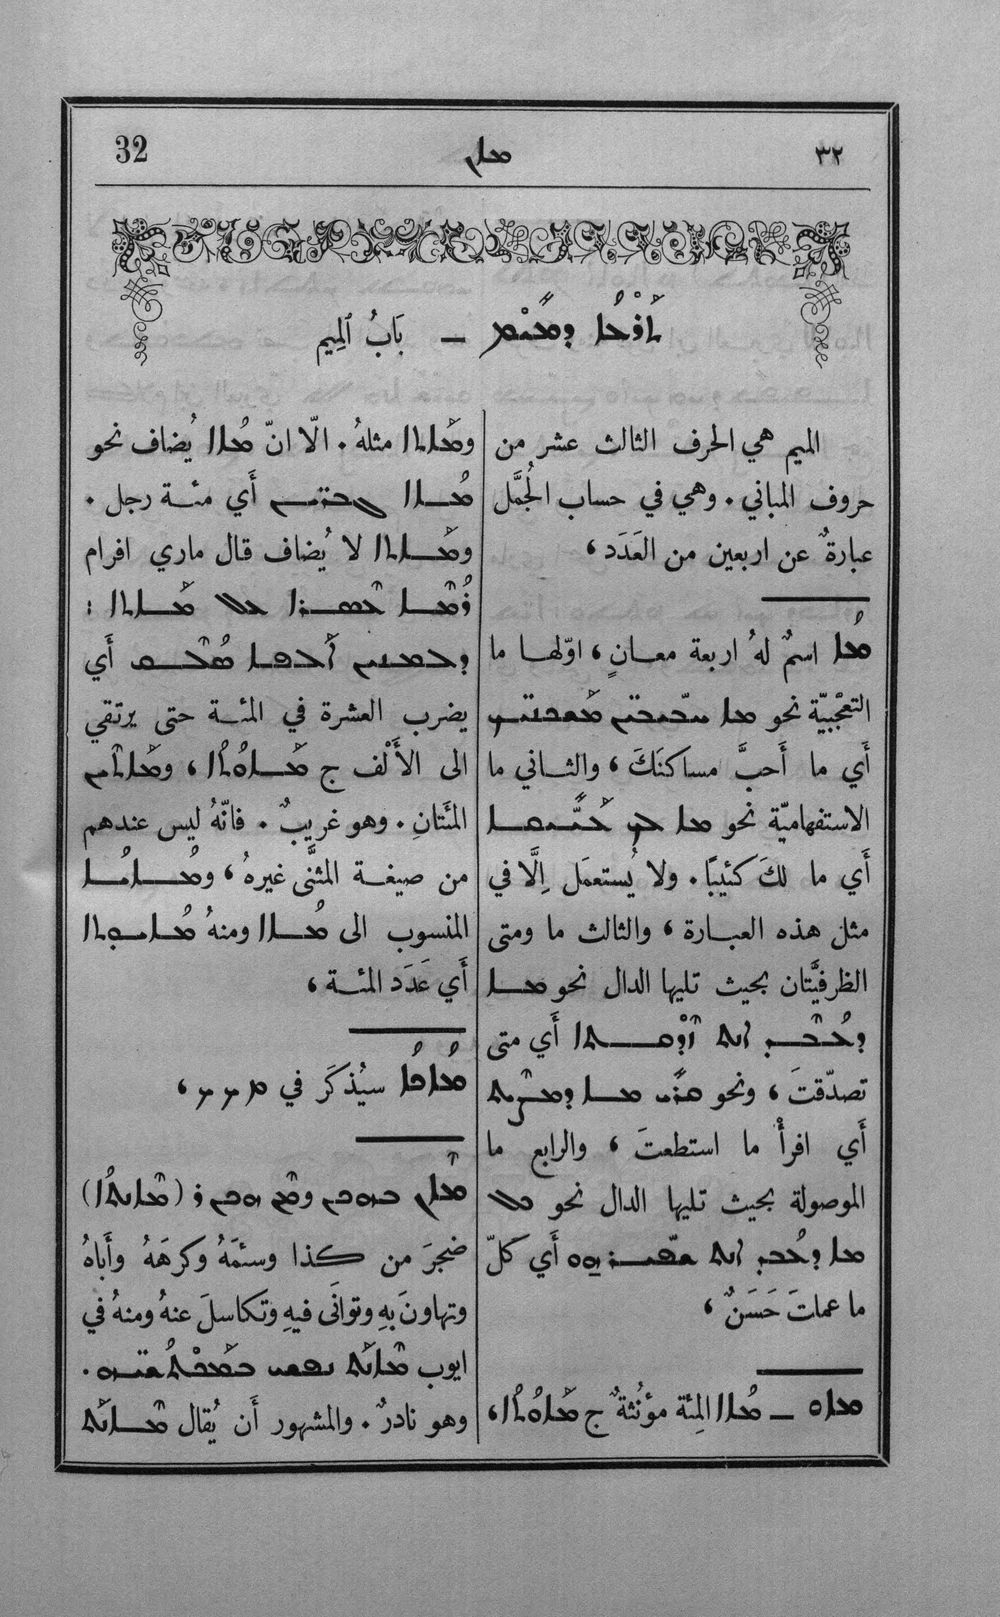 ٣٢ ܡܐܢ 32
ܬܰܪܥܳܐ ܕܡܺܝܡ — بَابُ ٱلمِيم
الميم هي الحرف الثالث عشر من
حروف المباني . وهي في حساب الجُمَّل
عبارةٌ عن اربعين من العَدَد ،
ܡܳܐ اسمٌ لهُ اربعة معانٍ ، اوّلها ما
التعجّبيّة نحو ܡܐ ܚܒܝܒܝܢ ܡܰܫܟܢܝܟ
أَي ما أَحبَّ مساكنَكَ ، والثاني ما
الاستفهاميّة نحو ܡܐ ܠܟ
أَي ما لكَ كئيبًا . ولا يُستعمَل إِلَّا في
مثل هذه العبارة ، والثالث ما ومتى
الظرفيَّتان بحيث تليها الدال نحو ܡܐ
ܕܥܳܒܶܕ ܐܢܬ ܙܶܕܩܬܐ أَي متى
تصدّقتَ ، ونحو ܩܪܝ ܡܐ ܕܡܨܶܝܬ
أَي افرأْ ما استطعتَ ، والرابع ما
الموصولة بحيث تليها الدال نحو ܟܠ
ܡܐ ܕܥܳܒܕ ܐܢܬ ܫܦܝܪ ܗܘ أَي كلّ
ما عملتَ حَسَنٌ ،
ܡܐܗ — ܡܳܐܐ المِئة مؤنُثةٌ ج ܡܰܐܘܳܬܳܐ ،
ܘܡܰܐܬܐ مثلهُ . الّا انّ ܡܳܐܐ يُضاف نحو
ܡܳܐܐ ܓܒܪܝܢ أَي مئة رجل .
ܘܡܰܐܬܐ لا يُضاف قال ماري افرام
ܪܳܡܶܐ ܥܶܣܪܐ ܥܠ ܡܰܐܬܐ :
ܐܰܠܦܐ ܣܳܠܶܩ أَي
يضرب العشرة في المئة حتى يرتقي
الى الأَلْف ج ܡܰܐܘܳܬܳܐ ، ܘܡܰܐܬܶܝܢ
المئَتانِ . وهو غريبٌ . فانّهُ ليس عندهم
من صيغة المثنَّى غيرهُ ، ܘܡܳܐܢܳܝܐ
المنسوب الى ܡܳܐܐ ومنهُ
أَي عَدَد المئة ،
ܡܳܐܟܳܐ سيُذكَر في
ܡܶܐܢ (ܡܶܐܢܬܳܐ)
ضجرَ من كذا وسئمَهُ وكرهَهُ وأَباهُ
وتهاونَ بهِ وتوانَى فيهِ وتكاسلَ عنهُ ومنهُ في
ايوب ܡܶܐܢܰܬ ܢܦܫܝ ܒܚܰܝܰܝ .
وهو نادرٌ . والمشهور أَن يُقال ܡܶܐܢܰܬ